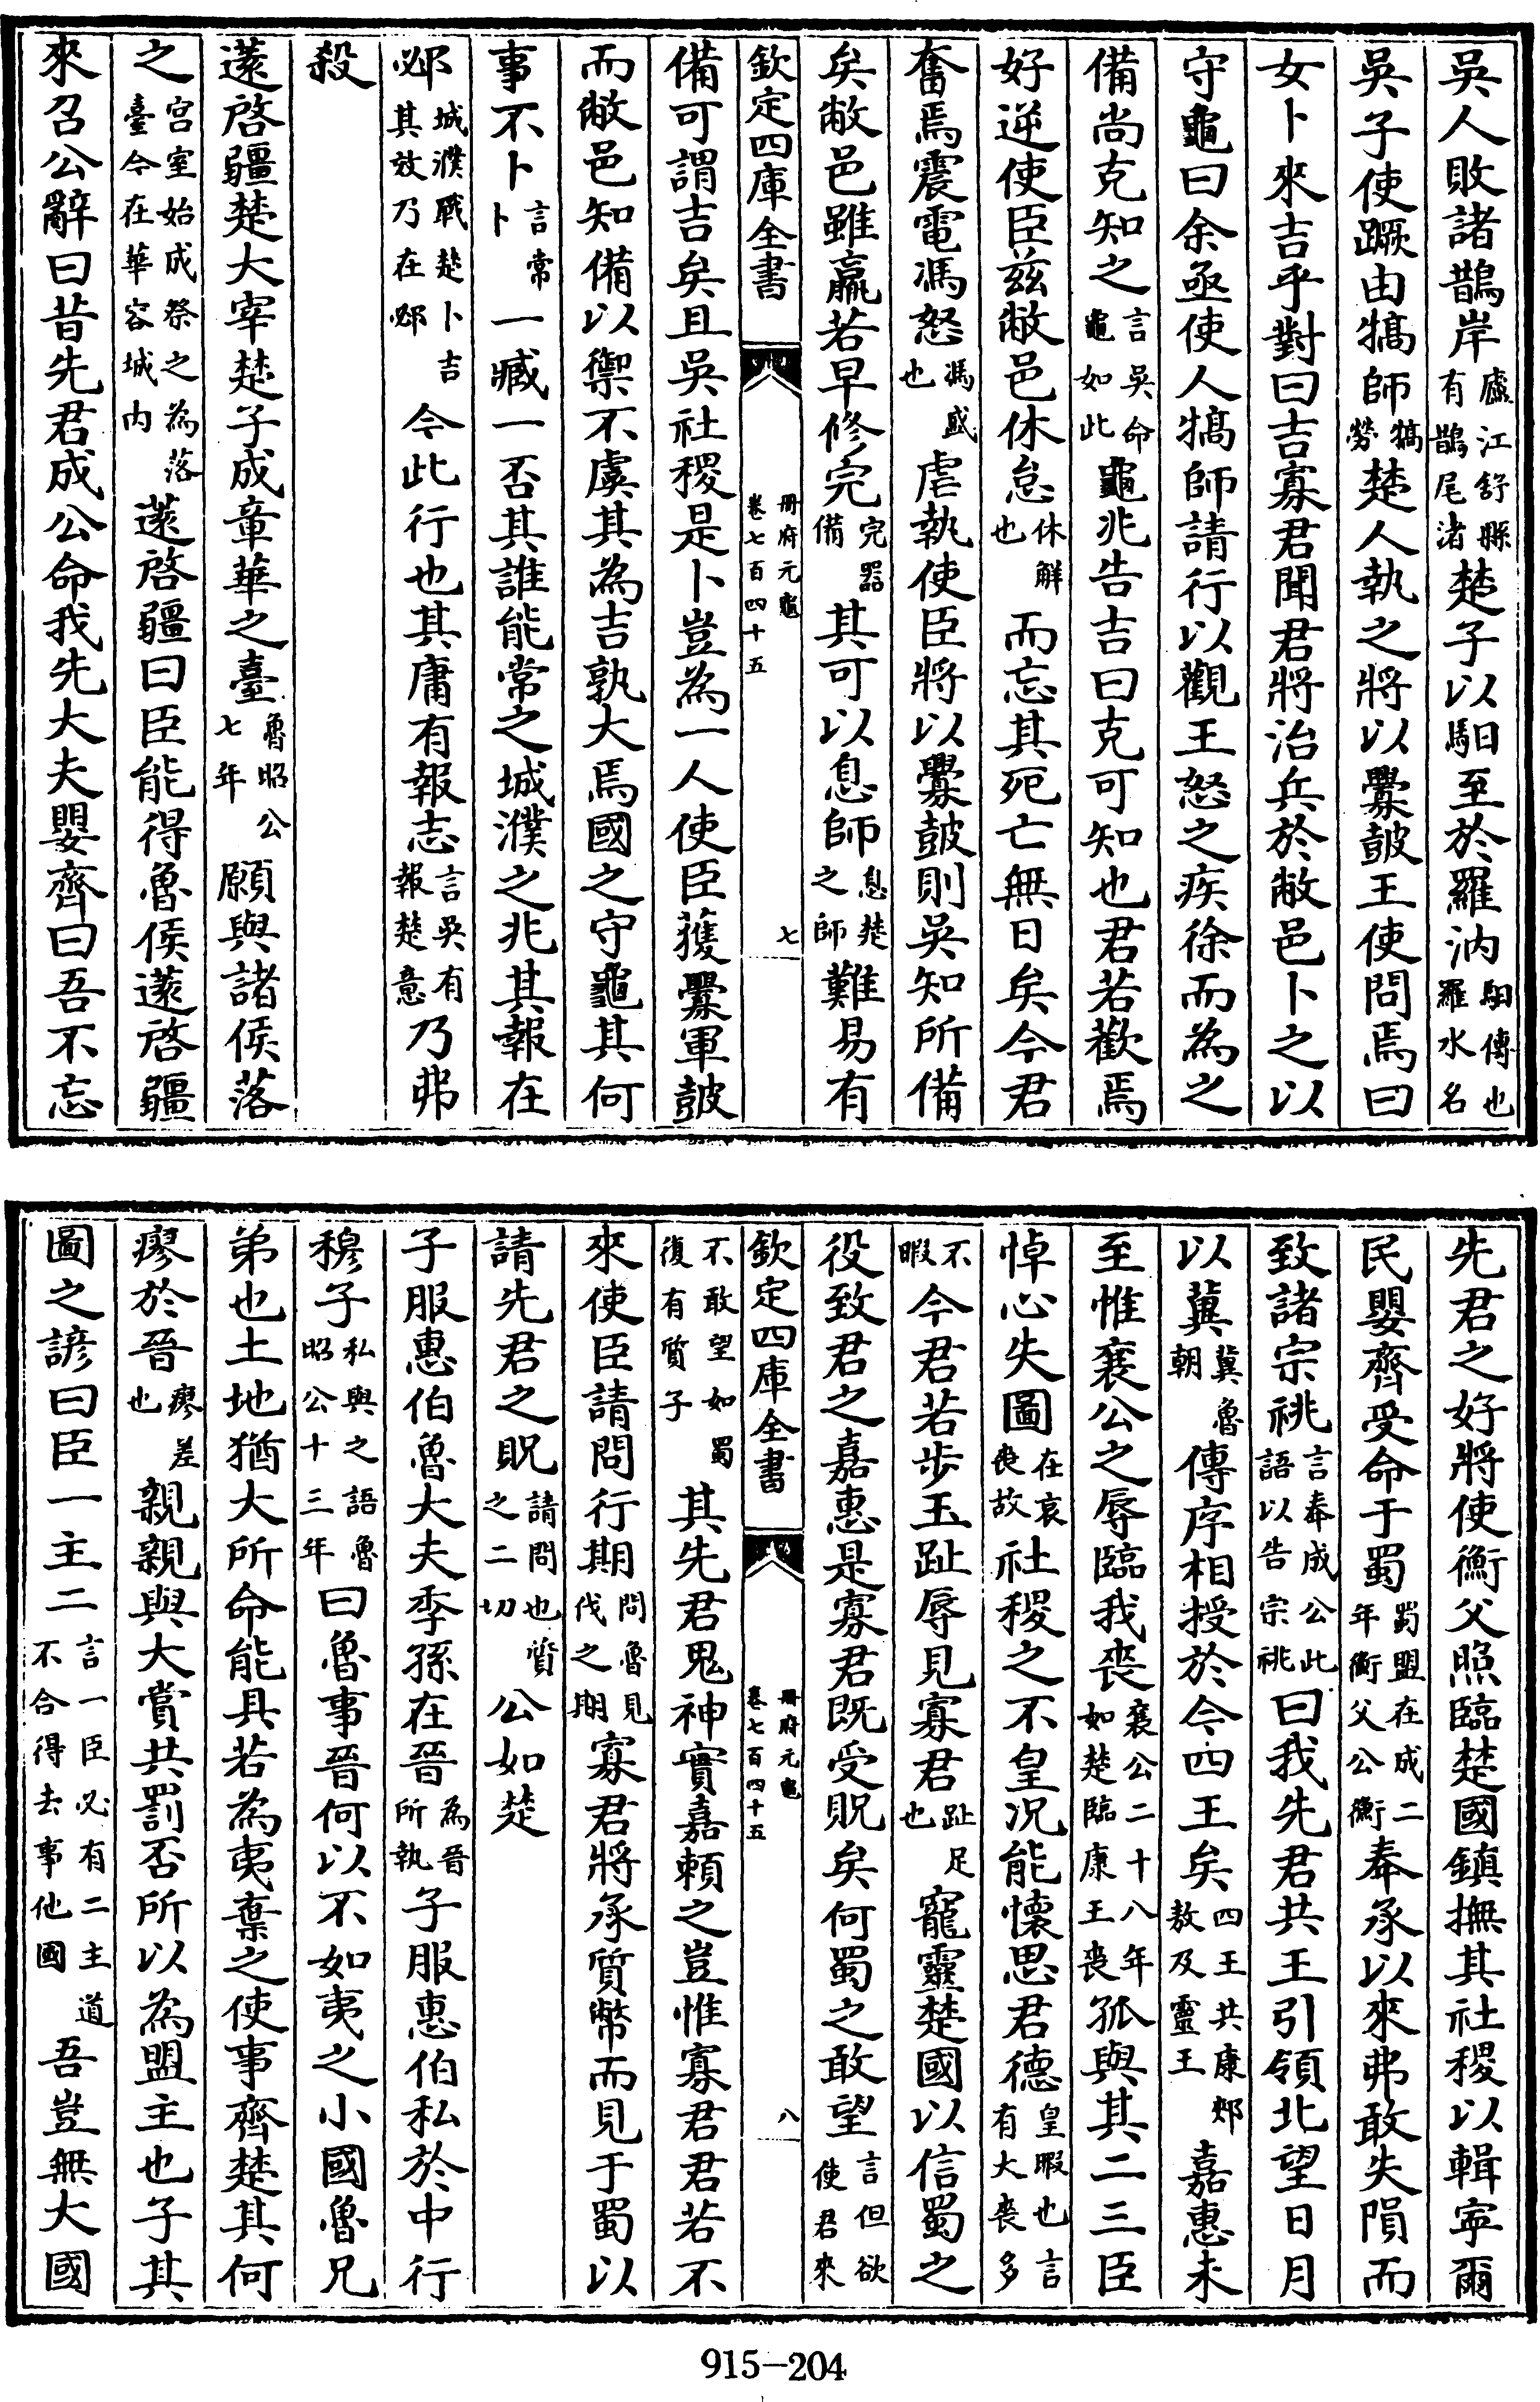 吳人敗諸鵲岸廬江舒縣有鵲尾渚楚子以馹至於羅汭馹傳也羅水名
吳子使蹶由犒師犒勞楚人執之將以釁鼓王使問焉曰
女卜來吉乎對曰吉寡君聞君將治兵於敝邑卜之以
守龜曰余亟使人犒師請行以觀王怒之疾徐而為之
備尚克知之言吳命龜如此龜兆告吉曰克可知也君若歡焉
好逆使臣兹敝邑休怠休解也而忘其死亡無日矣今君
奮焉震電馮怒馮盛也虐執使臣將以釁鼓則吳知所備
矣敝邑雖羸若早修完完器備其可以息師息楚之師難易有
欽定四庫全書 冊府元龜卷七百四十五 七
備可謂吉矣且吳社稷是卜豈為一人使臣獲釁軍鼓
而敝邑知備以禦不虞其為吉孰大焉國之守龜其何
事不卜言常卜一臧一否其誰能常之城濮之兆其報在
邲城濮戰楚卜吉其效乃在邲今此行也其庸有報志言吳有報楚意乃弗
殺
薳啓疆楚大宰楚子成章華之臺魯昭公七年願與諸侯落
之宮室始成祭之為落臺今在華容城内薳啓疆曰臣能得魯侯薳啓疆
來召公辭曰昔先君成公命我先大夫嬰齊曰吾不忘
先君之好將使衡父照臨楚國鎮撫其社稷以輯寧爾
民嬰齊受命于蜀蜀盟在成二年衡父公衡奉承以來弗敢失隕而
致諸宗祧言奉成公此語以告宗祧曰我先君共王引領北望日月
以冀冀魯朝傳序相授於今四王矣四王共康郟敖及靈王嘉惠未
至惟襄公之辱臨我喪襄公二十八年如楚臨康王喪孤與其二三臣
悼心失圖在哀喪故社稷之不皇况能懷思君德皇暇也言有大喪多
不暇今君若步玉趾辱見寡君趾足也寵靈楚國以信蜀之
役致君之嘉惠是寡君既受貺矣何蜀之敢望言但欲使君來
欽定四庫全書 冊府元龜卷七百四十五 八
不敢望如蜀復有質子其先君鬼神實嘉賴之豈惟寡君君若不
來使臣請問行期問魯見伐之期寡君將承質幣而見于蜀以
請先君之貺請問也質之二切公如楚
子服惠伯魯大夫季孫在晉為晉所執子服惠伯私於中行
穆子私與之語魯昭公十三年曰魯事晉何以不如夷之小國魯兄
弟也土地猶大所命能具若為夷棄之使事齊楚其何
瘳於晉瘳差也親親與大賞共罰否所以為盟主也子其
圖之諺曰臣一主二言一臣必有二主道不合得去事他國吾豈無大國
915—204